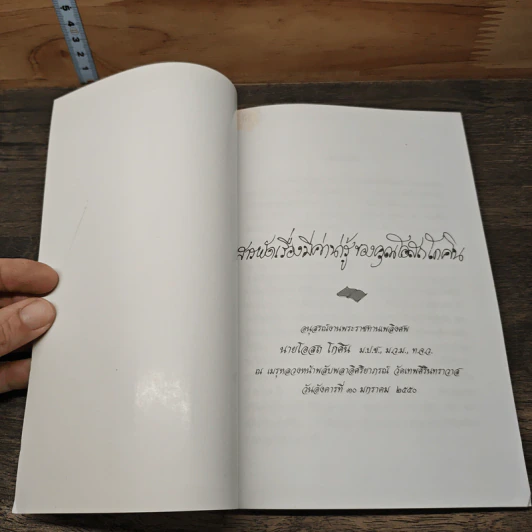 สารพัดเรื่องมีค่าน่ารู้ ของคุณโอสถ โกศิน
อนุสรณ์งานพระราชทานเพลิงศพ
นายโอสถ โกศิน ม.ป.ช., ม.ว.ม., ท.จ.ว.
ณ เมรุหลวงหน้าพลับพลาอิศริยาภรณ์ วัดเทพศิรินทราวาส
วันอังคารที่ ๓๐ มกราคม ๒๕๕๐
5 4 3 2 1